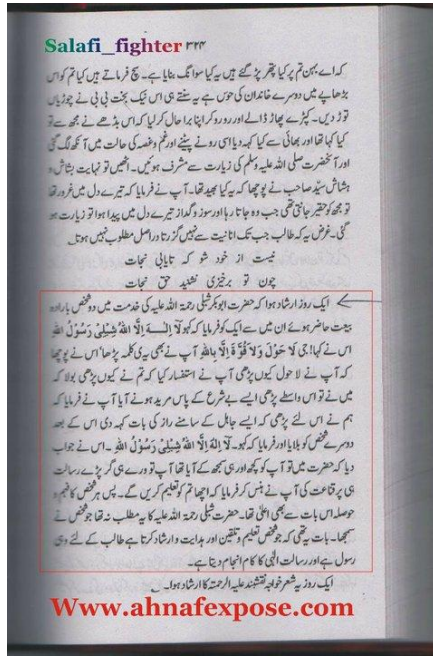 Salafi_fighter ۳۲۴
کہ اے بہن تم پر کیا پتھر پڑ گئے ہیں یہ کیا سوانگ بنایا ہے۔ سچ فرماتے ہیں کیا تم کو اس
بڑھاپے میں دوسرے خاندان کی حوس ہے یہ سنتے ہی اس نیک بخت بی بی نے چوڑیاں
توڑ دیں۔ کپڑے پھاڑ ڈالے اور رو رو کر اپنا برا حال کر لیا کہ اس بڈھے نے مجھ سے تو
کیا کہا تھا اور بھائی سے کیا کہہ دیا اسی رونے پیٹنے اور غم و غصہ کی حالت میں آنکھ لگ گئی
اور آنحضرت صلی اللہ علیہ وسلم کی زیارت سے مشرف ہوئیں۔ اٹھیں تو نہایت بشاش و
ہشاش سیّد صاحب نے پوچھا کہ یہ کیا بھید تھا۔ آپ نے فرمایا کہ تیرے دل میں غرور تھا
تو مجھ کو حقیر جانتی تھی جب وہ جاتا رہا اور سوز و گداز تیرے دل میں پیدا ہوا تو زیارت ہو
گئی۔ غرض یہ کہ طالب جب تک انانیت سے نہیں گزرتا در اصل مطلوب نہیں ہوتا۔
نیست از خود شو کہ تایابی نجات
چون تو برخیزی نشیند حق نجات
ایک روز ارشاد ہوا کہ حضرت ابوبکر شبلی رحمۃ اللہ علیہ کی خدمت میں دو شخص بارادہ
بیعت حاضر ہوئے ان میں سے ایک کو فرمایا کہ کہو لَا اِلٰـهَ اِلَّا اللّٰهُ شِبْلِیْ رَسُوْلُ اللّٰهِ
اس نے کہا اجی لَا حَوْلَ وَلَا قُوَّةَ اِلَّا بِاللّٰهِ آپ نے بھی یہی کلمہ پڑھا' اس نے پوچھا
کہ آپ نے لا حول کیوں پڑھی آپ نے استفسار کیا کہ تم نے کیوں پڑھی بولا کہ
میں نے تو اس واسطے پڑھی ایسے بےشرع کے پاس مرید ہونے آیا آپ نے فرمایا کہ
ہم نے اس لئے پڑھی کہ ایسے جاہل کے سامنے راز کی بات کہہ دی اس کے بعد
دوسرے شخص کو بلایا اور فرمایا کہ کہو۔ لَا اِلٰهَ اِلَّا اللّٰهُ شِبْلِیْ رَسُوْلُ اللّٰهِ ۔ اس نے جواب
دیا کہ حضرت میں تو آپ کو کچھ اور ہی سمجھ کے آیا تھا آپ تو ورے ہی گر پڑے رسالت
ہی پر قناعت کی آپ نے ہنس کر فرمایا کہ اچھا تم کو تعلیم کریں گے۔ پس ہر شخص کا فہم و
حوصلہ اس بات سے بھی اعلیٰ تھا۔ حضرت شبلی رحمۃ اللہ علیہ کا یہ مطلب نہ تھا جو شخص نے
سمجھا۔ بات یہ تھی کہ جو شخص تعلیم و تلقین اور ہدایت و ارشاد کرتا ہے طالب کے لئے وہی
رسول ہے اور رسالت الٰہی کا کام انجام دیتا ہے۔
ایک روز یہ شعر خواجہ نقشبند علیہ الرحمتہ کا ارشاد ہوا۔
Www.ahnafexpose.com